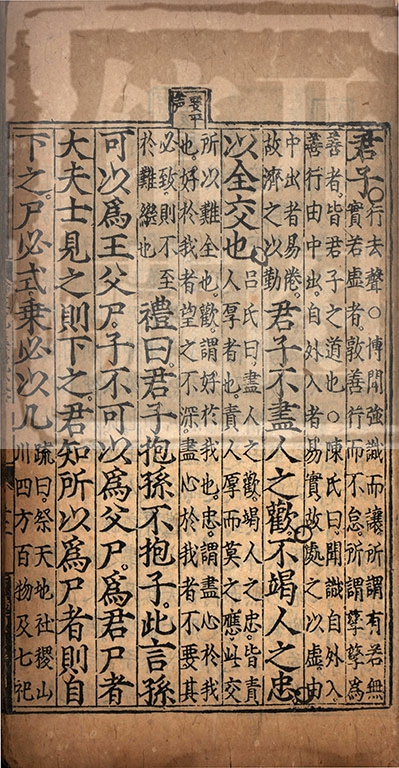 要平聲
君子。行去聲○博聞強識而讓。所謂有若無
實若虛者。敦善行而不怠。所謂孳孳爲
善者。皆君子之道也○陳氏曰。聞識自外入
善行由中出。自外入者易實。故處之以虛。由
中出者易倦。
故濟之以勤
君子不盡人之歡。不竭人之忠。
以全交也。
呂氏曰。盡人之歡。竭人之忠。皆責
人厚者也。責人厚而莫之應。此交
所以難全也。歡。謂好於我也。忠。謂盡心於我
也。好於我者。望之不深。盡心於我者。不要其
必致。則不至
於難繼也
禮曰。君子抱孫不抱子。此言孫
可以爲王父尸。子不可以爲父尸。爲君尸者
大夫士見之則下之。君知所以爲尸者則自
下之。尸必式。乘必以几
疏曰。祭天地社稷山
川四方百物及七祀